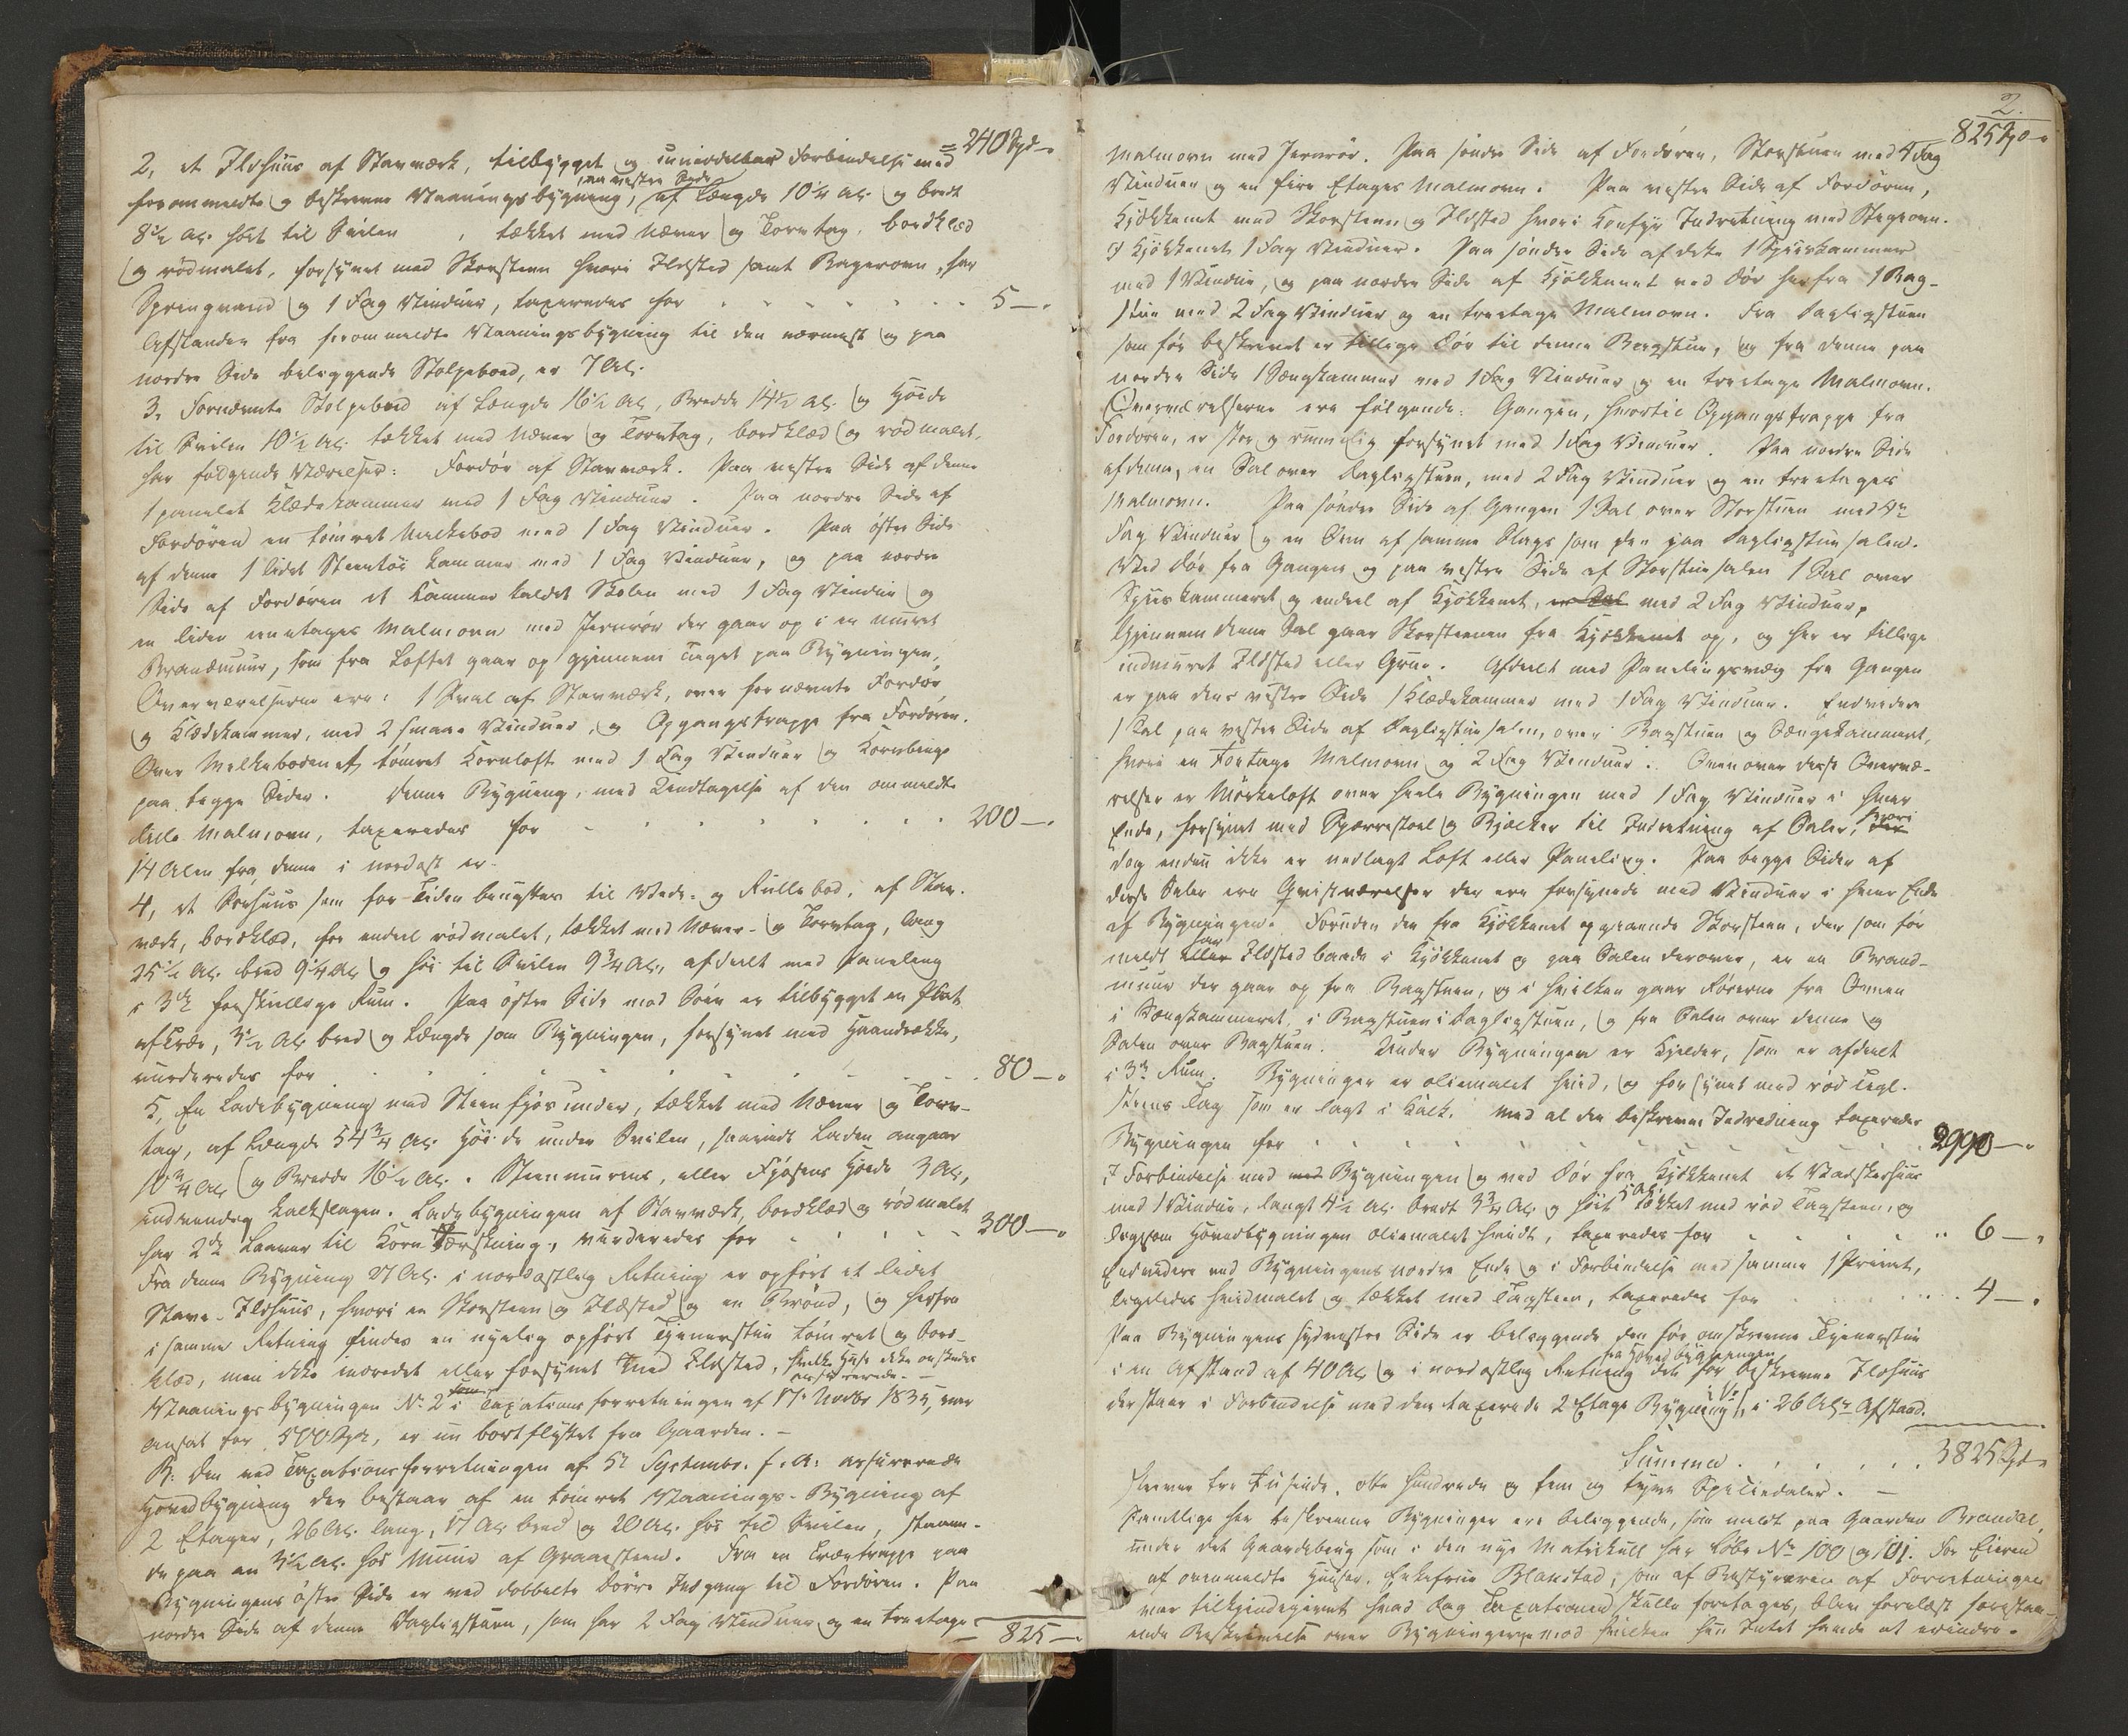 = 240 Spd -
2, et Ildhuus af Stavværk, tilbygget og i umiddelbar Forbindelse med
forommeldte og beskrevne Vaaningsbygning, paa vestre Side, af Længde 10 1/4 Al. og bredt
8 1/2 Al. høit til Svilen , tækket med Næver og Torvtag, bordklæd
og rødmalet, forsynet med Skorsteen hvori Ildsted samt Bagerovn, har
Springvand og 1 Fag Vinduer, taxeredes for 5 -
Afstanden fra forommeldte Vaaningsbygning til den nærmest og paa
nordre Side beliggende Stolpeboed, er 7 Al.
3, Fornævnte Stolpebod af Længde 16 1/2 Al, Bredde 14 1/2 Al. og Høide
til Svilen 10 1/2 Al. tækket med Næver og Torvtag, bordklæd og rødmalet,
har følgende Værelser: Fordør af Stavværk. Paa vestre Side af denne
1 panelet Klædekammer med 1 Fag Vinduer. Paa nordre Side af
Fordøren en tømret Melkebod med 1 Fag Vinduer. Paa østre Side
af denne 1 lidet Steentøi Kammer med 1 Fag Vinduer, og paa nordre
Side af Fordøren et Kammer kaldet Skolen med 1 Fag Vinduer og
en liden eenetages Malmovn med Jernrør der gaar op i en muret
Brandmuur, som fra Loftet gaar op gjennem Taget paa Bygningen,
Overværelserne ere: 1 Sval af Stavværk, over fornævnte Fordør
og Klædekammer, med 2 smaae Vinduer, og Opgangstrappe fra Fordøren.
Over Melkeboden et tømret Kornloft med 1 Fag Vinduer og Kornbinge
paa begge Sider. Denne Bygning, med Undtagelse af den ommeldte
lille Malmovn, taxeredes for 200 -
14 Alen fra denne i nordost er
4, et Søehuus som for Tiden benyttes til Vede- og Rullebod, af Stav-
værk, bordklæd, for endeel rødmalet, tækket med Næver- og Torvtag, lang
25 1/2 Al. bred 9 1/4 Al og høi til Svilen 9 3/4 Al., afdeelt med Paneling
i 3de forskjellige Rum. Paa østre Side mod Søen er tilbygget en Plat
af Træe, 3 1/2 Al. bred og Længde som Bygningen, forsynet med Haandrække,
vurderedes for 80 -
5, En Ladebygning med Steenfjøs under, tækket med Næver og Torv-
tag, af Længde 54 3/4 Al. Høide under Svilen, saavidt Laden angaar
10 3/4 Al og Bredde 16 1/2 Al. Steenmurens, eller Fjøsens Høide 3 Al,
indvendig kalkslagen. Ladebygningen af Stavværk, bordklæd og rødmalet
har 2de Laaver til Korn Tærskning, vurderedes for 300 -
Fra denne Bygning 27 Al. i nordostlig Retning er opført et lidet
Stave-Ildhuus, hvori en Skorsteen og Ildsted og en Brønd, og herfra
i samme Retning findes en nyelig opført Tjenerstue tømret og bord-
klæd, men ikke indredet eller forsynet med Ildsted, hvilke Huse ikke ønskedes
assurerede. -
Vaaningsbygningen No 2 som i Taxationsforretningen af 17. Novbr 1834, var
ansat for 500 Spd, er nu bortflyttet fra Gaarden. -
B: Den ved Taxationsforretningen af 5te September f. A. assurerede
Hovedbygning der bestaar af en tømret Vaanings-Bygning af
2 Etager, 26 Al. lang, 17 Al. bred og 20 Al. høi til Svilen, staaen-
de paa en 3 1/2 Al. høi Muur af Graasteen. Fra en Trætrappe paa
Bygningens østre Side er ved dobbelte Dørre Indgang til Fordøren. Paa
nordre Side af denne Dagligstuen, som har 2 Fag Vinduer og en treetage
825 -
2.
825 Spd -
Malmovn med Jernrør. Paa søndre Side af Fordøren, Storstuen med 4 Fag
Vinduer og en fire Etages Malmovn. Paa vestre Side af Fordøren,
Kjøkkenet med Skorsteen og Ildsted hvori Komfyr Indretning med Stegeovn.
I Kjøkkenet 1 Fag Vinduer. Paa søndre Side af dette 1 Spiiskammer
med 1 Vindue, og paa nordre Side af Kjøkkenet ved Dør herfra 1 Bag-
stue med 2 Fag Vinduer og en treetages Malmovn. Fra Dagligstuen
som før beskrevet er tillige Dør til denne Bagstue, og fra denne paa
nordre Side 1 Sengkammer med 1 Fag Vinduer og en treetage Malmovn.
Overværelserne ere følgende: Gangen, hvortil Opgangstrappe fra
Fordøren, er stor og rummelig forsynet med 1 Fag Vinduer. Paa nordre Side
af denne, en Sal over Dagligstuen, med 2 Fag Vinduer og en treetages
Malmovn. Paa søndre Side af Gangen 1 Sal over Storstuen med 4re
Fag Vinduer og en Ovn af samme Slags som den paa Dagligstuesalen.
Ved Dør fra Gangen og paa vestre Side af Storstuesalen 1 Sal over
Spiiskammeret og endeel af Kjøkkenet, er Sal med 2 Fag Vinduer,
Gjennem denne Sal gaar Skorsteenen fra Kjøkkenet op, og her er tillige
indmuret Ildsted eller Grue. Afdeelt med Panelingsvæg fra Gangen
er paa dens vestre Side 1 Klædekammer med 1 Fag Vinduer. Endvidere
1 Sal paa vestre Side af Dagligstuesalen, over Bagstuen og Sængekammeret,
hvori en Toetage Malmovn og 2 Fag Vinduer. Ovenover disse Overvæ-
relser er Mørkeloft over heele Bygningen med 1 Fag Vinduer i hver
Ende, forsynet med Sparrestoel og Bjælker til Indretning af Saler, der hvori
dog endnu ikke er nedlagt Loft eller Paneling. Paa begge Sider af
disse Saler ere Qvistværelser der ere forsynede med Vinduer i hver Ende
af Bygningen. Foruden den fra Kjøkkenet opgaaende Skorsteen, der som før
meldt eller har Ildsted baade i Kjøkkenet og paa Salen derover, er en Brand-
muur der gaar op fra Bagstuen, og i hvilken gaar Rørerne fra Ovnen
i Sengkammeret, i Bagstuen i Dagligstuen, og fra Salen over denne og
Salen over Bagstuen. Under Bygningen er Kjelder, som er afdeelt
i 3de Rum. Bygningen er oliemalet hvid, og forsynet med rød Tegl-
steens Tag som er lagt i Kalk. Med al den beskrevne Indredning taxeredes
Bygningen for 2990 -
I Forbindelse med med Bygningen og ved Dør fra Kjøkkenet et Vadskerhuus
med 1 Vindue, langt 4 1/2 Al. bredt 3 3/4 Al. og høit 5 Al. tækket med rød Tagsteen, og
ligesom Hovedbygningen oliemalet hvidt, taxeredes for 6 -
Endvidere ved Bygningens nordre Ende og i Forbindelse med samme 1 Privet,
ligeledes hvidmalet og tækket med Tagsteen, taxeredes for 4 -
Paa Bygningens sydvestre Side er beliggende den før omskrevne Tjenerstue
i en Afstand af 40 Al og i nordostlig Retning fra Hovedbygningen det før beskrevne Ildhuus
der staar i Forbindelse med den taxerede 2 Etage Bygning i 26 Al. Afstand.
Summa 3825 Spd -
skriver tre tusinde, otte hundrede og fem og tyve Speciedaler. -
Samtlige her beskrevne Bygninger ere beliggende, som meldt paa Gaarden Brandal,
under det Gaardebrug som i den nye Matrikull har Løbe No 100 og 101. For Eieren
af ovenmeldte Huuser, Enkefrue Blanstad, som af Bestyreren af Forretningen
var tilkjendegivet hvad Dag Taxationen skulle foretages, blev forelæst forestaa-
ende Beskrivelse over Bygningerne mod hvilken hun Intet havde at erindre.